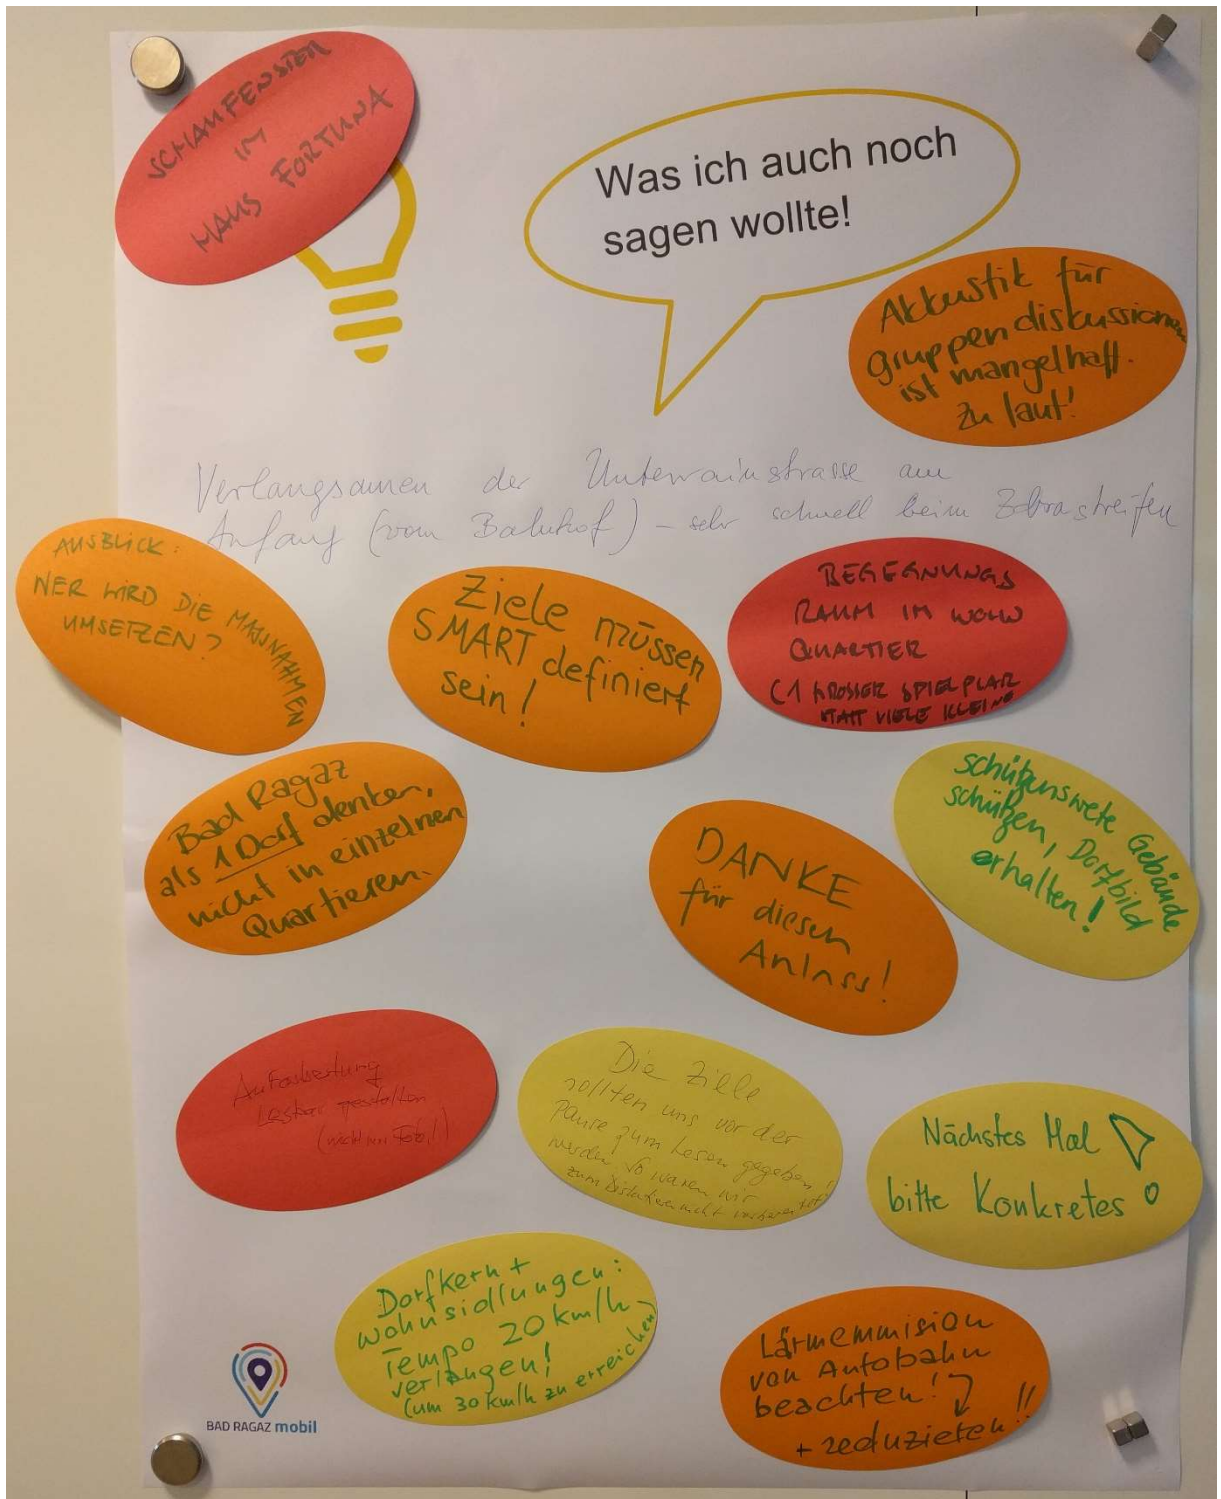 SCHAUFENSTER
IM
HAUS FORTUNA
Was ich auch noch
sagen wollte!
Akkustik für
gruppendiskussionen
ist mangelhaft.
zu laut!
Verlangsamen der Unterrainstrasse am
Anfang (vom Bahnhof) – sehr schnell beim Zebrastreifen
AUSBLICK:
WER WIRD DIE MASSNAHMEN
UMSETZEN?
Ziele müssen
SMART definiert
sein!
BEGEGNUNGS
RAUM IM WOHN
QUARTIER
(1 GROSSER SPIELPLATZ
STATT VIELE KLEINE
Bad Ragaz
als 1 Dorf denken,
nicht in einzelnen
Quartieren.
DANKE
für diesen
Anlass!
schützenswete Gebäude
schützen, Dorfbild
erhalten!
Aufarbeitung
Lesbar gestalten
(nicht nur Foto!)
Die Ziele
sollten uns vor der
Pause zum Lesen gegeben
werden so waren wir
zum Diskutieren nicht vorbereitet!
Nächstes Mal
bitte Konkretes!
Dorfkern +
wohnsidlungen:
Tempo 20 km/h
verlangen!
(um 30 km/h zu erreichen)
Lärmemmision
von Autobahn
beachten!
+ reduzieren!!
BAD RAGAZ mobil